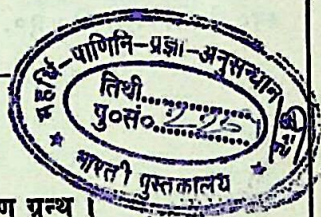 महर्षि-पाणिनि-प्रज्ञा-अनुसन्धान
तिथी..................
पु०सं०..................
भारती पुस्तकालय
ण ग्रन्थ ।